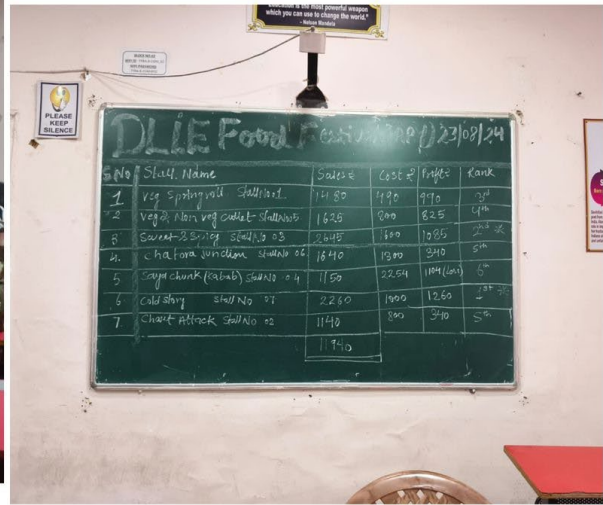 Education is the most powerful weapon
which you can use to change the world."
- Nelson Mandela
PLEASE
KEEP
SILENCE
DLIE Food 23/08/24
S.No Stall Name Sales ₹ Cost ₹ Profit ₹ Rank
1 veg Springroll Stall No 1 1480 490 990 3rd
2 veg & Non veg cutlet Stall No 5 1625 800 825 4th
3 Sweet & Spicy Stall No 03 2645 1600 1085 2nd
4. Chatora junction Stall No 06 1640 1300 340 5th
5 Saya chunk (Kabab) Stall No 04 1150 2254 1104 (Loss) 6th
6 Cold Story Stall No 07 2260 1000 1260 1st
7. Chaat Attack Stall No 02 1140 800 340 5th
11940